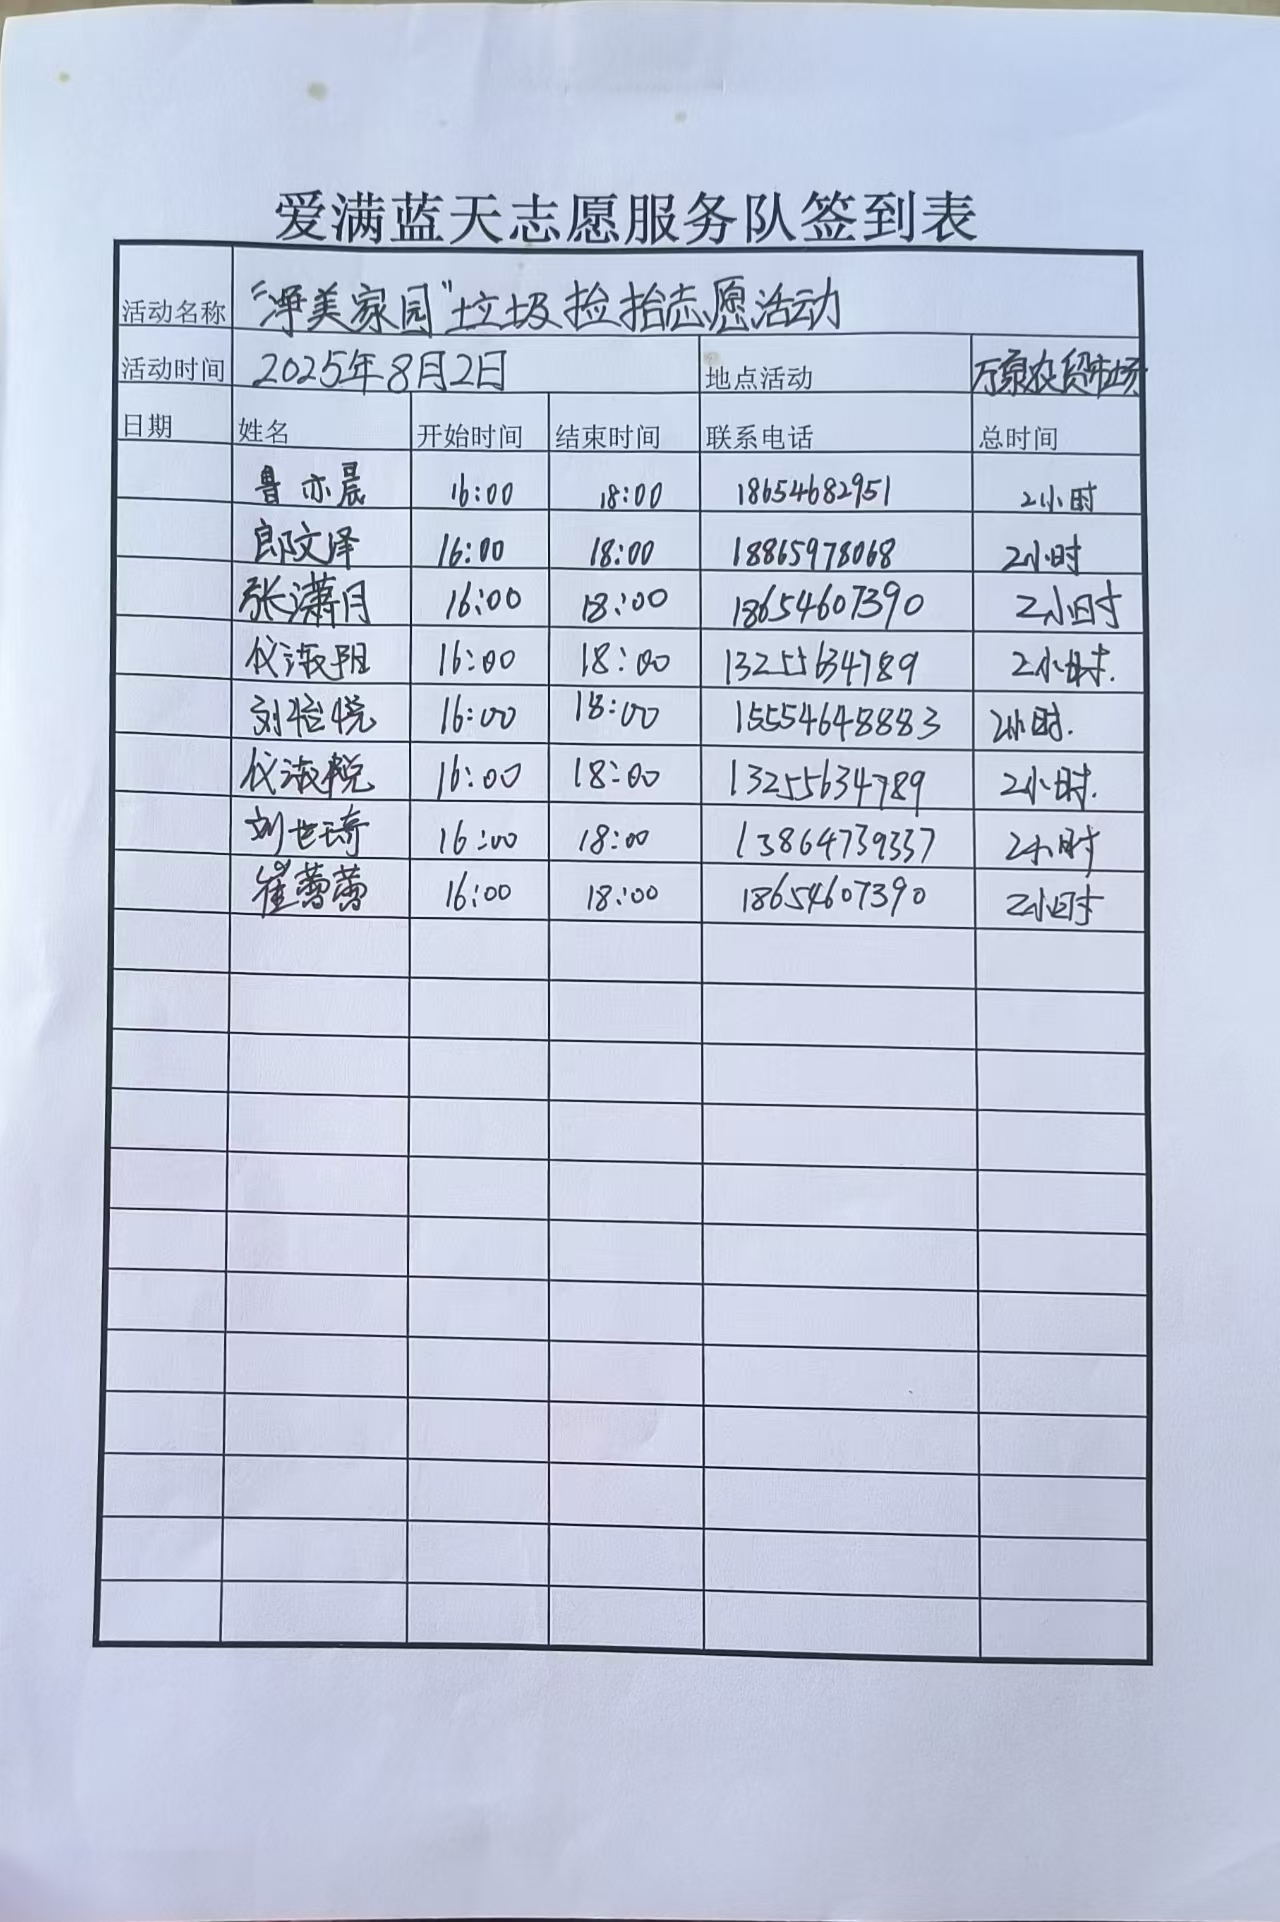 爱满蓝天志愿服务队签到表
活动名称 “净美家园”垃圾捡拾志愿活动
活动时间 2025年8月2日 地点活动 万象农贸市场
日期 姓名 开始时间 结束时间 联系电话 总时间
鲁亦晨 16:00 18:00 18654682951 2小时
郎文泽 16:00 18:00 18865978068 2小时
张潇月 16:00 18:00 18654607390 2小时
仪淑阳 16:00 18:00 13255634789 2小时.
刘怡悦 16:00 18:00 15554648883 2小时.
仪淑悦 16:00 18:00 13255634789 2小时.
刘世琦 16:00 18:00 13864739337 2小时
崔蕾蕾 16:00 18:00 18654607390 2小时